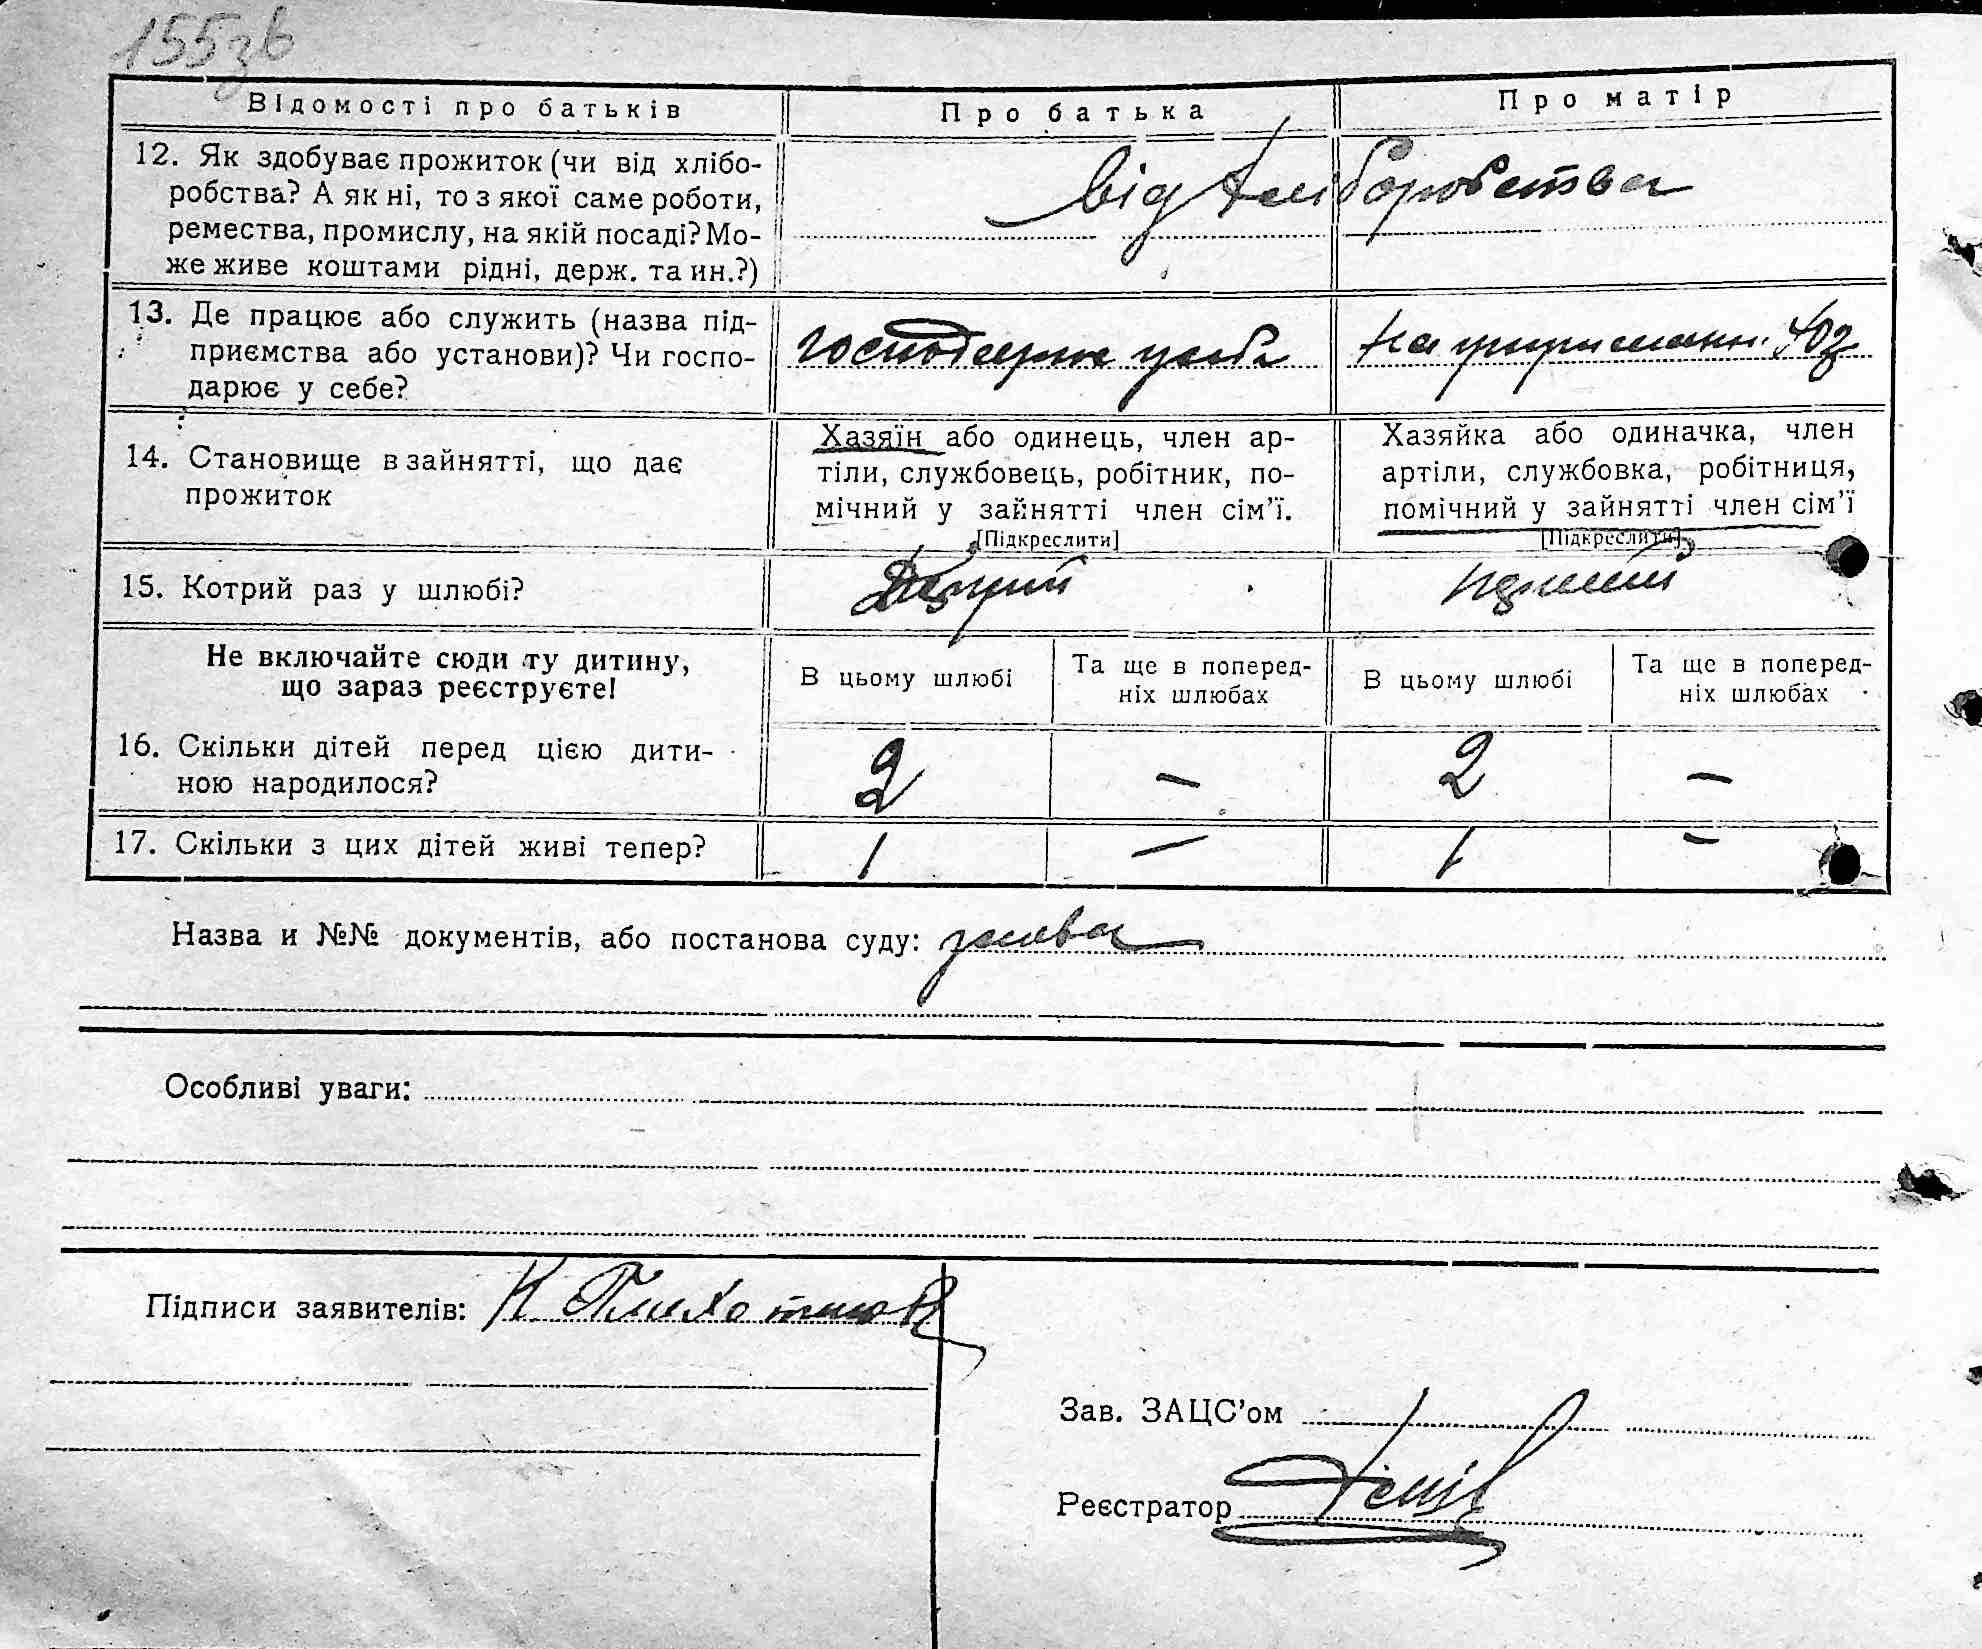 155зв
Відомості про батьків
Про батька
Про матір
12. Як здобуває прожиток (чи від хлібо-
робства? А як ні, то з якої саме роботи,
ремества, промислу, на якій посаді? Мо-
же живе коштами рідні, держ. та ин.?)
від хліборобства
13. Де працює або служить (назва під-
приємства або установи)? Чи госпо-
дарює у себе?
господарює у себе
на утриманні
14. Становище в зайнятті, що дає
прожиток
Хазяїн або одинець, член ар-
тіли, службовець, робітник, по-
мічний у зайнятті член сім'ї.
[Підкреслити]
Хазяйка або одиначка, член
артіли, службовка, робітниця,
помічний у зайнятті член сім'ї
[Підкреслити]
15. Котрий раз у шлюбі?
Перший
Не включайте сюди ту дитину,
що зараз реєструєте!
В цьому шлюбі
Та ще в поперед-
ніх шлюбах
В цьому шлюбі
Та ще в поперед-
ніх шлюбах
16. Скільки дітей перед цією дити-
ною народилося?
2
—
2
—
17. Скільки з цих дітей живі тепер?
1
—
1
—
Назва и №№ документів, або постанова суду: заява
Особливі уваги:
Підписи заявителів:
Зав. ЗАЦС'ом
Реєстратор